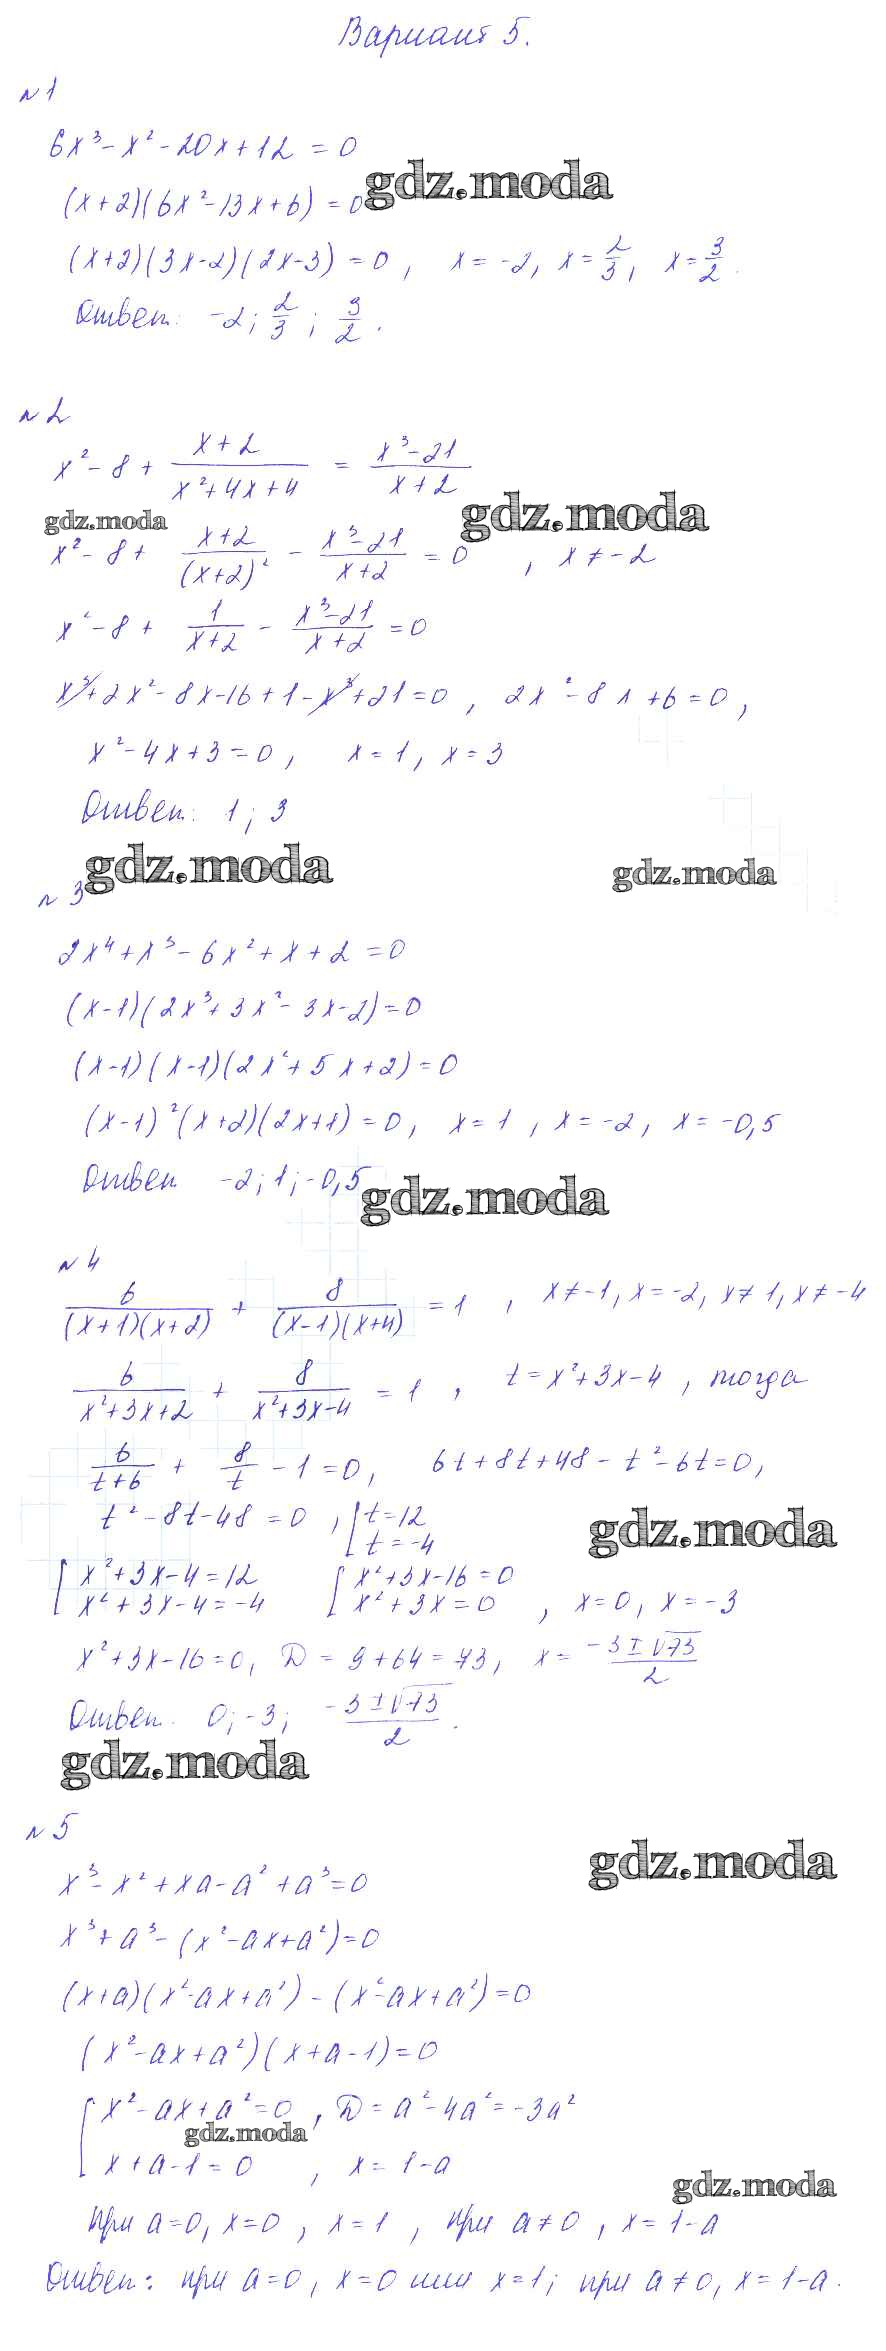 Вариант 5.
№1
6x³ - x² - 20x + 12 = 0
gdz.moda
(x+2)(6x² - 13x + 6) = 0
(x+2)(3x-2)(2x-3) = 0, x = -2, x = 2/3, x = 3/2.
Ответ: -2; 2/3; 3/2.
№2
x² - 8 + (x+2)/(x²+4x+4) = (x³-21)/(x+2)
gdz.moda gdz.moda
x² - 8 + (x+2)/(x+2)² - (x³-21)/(x+2) = 0, x ≠ -2
x² - 8 + 1/(x+2) - (x³-21)/(x+2) = 0
x³ + 2x² - 8x - 16 + 1 - x³ + 21 = 0, 2x² - 8x + 6 = 0,
x² - 4x + 3 = 0, x = 1, x = 3
Ответ: 1; 3
gdz.moda gdz.moda
№3
2x⁴ + x³ - 6x² + x + 2 = 0
(x-1)(2x³ + 3x² - 3x - 2) = 0
(x-1)(x-1)(2x² + 5x + 2) = 0
(x-1)²(x+2)(2x+1) = 0, x = 1, x = -2, x = -0,5
Ответ -2; 1; -0,5
gdz.moda
№4
6/((x+1)(x+2)) + 8/((x-1)(x+4)) = 1, x ≠ -1, x = -2, x ≠ 1, x ≠ -4
6/(x²+3x+2) + 8/(x²+3x-4) = 1, t = x²+3x-4, тогда
6/(t+6) + 8/t - 1 = 0, 6t + 8t + 48 - t² - 6t = 0,
t² - 8t - 48 = 0, [t = 12
t = -4
gdz.moda
[x² + 3x - 4 = 12 [x² + 3x - 16 = 0
x² + 3x - 4 = -4 x² + 3x = 0, x = 0, x = -3
x² + 3x - 16 = 0, D = 9 + 64 = 73, x = (-3 ± √73)/2
Ответ. 0; -3; (-3 ± √73)/2.
gdz.moda
№5
gdz.moda
x³ - x² + xa - a² + a³ = 0
x³ + a³ - (x² - ax + a²) = 0
(x+a)(x² - ax + a²) - (x² - ax + a²) = 0
(x² - ax + a²)(x + a - 1) = 0
[x² - ax + a² = 0, D = a² - 4a² = -3a²
gdz.moda
x + a - 1 = 0, x = 1 - a
gdz.moda
при a = 0, x = 0, x = 1, при a ≠ 0, x = 1 - a
Ответ: при a = 0, x = 0 или x = 1; при a ≠ 0, x = 1 - a.